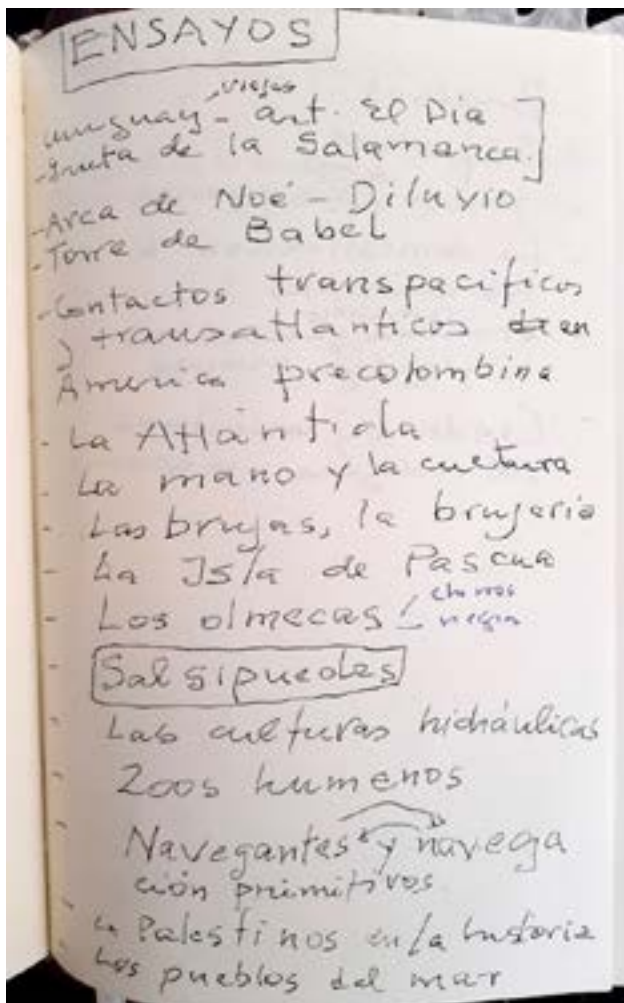 ENSAYOS
viejos
Uruguay - art. El Dia
- Gruta de la Salamanca.
- Arca de Noé - Diluvio
- Torre de Babel
- Contactos transpacificos
y transatlanticos en
America precolombina
- La Atlántida
- La mano y la cultura
- Las brujas, la brujeria
- La Isla de Pascua
- Los olmecas
negros
- Salsipuedes
- Las culturas hidráulicas
- Zoos humanos
- Navegantes y navega
ción primitivos
- Palestinos en la historia
- Los pueblos del mar